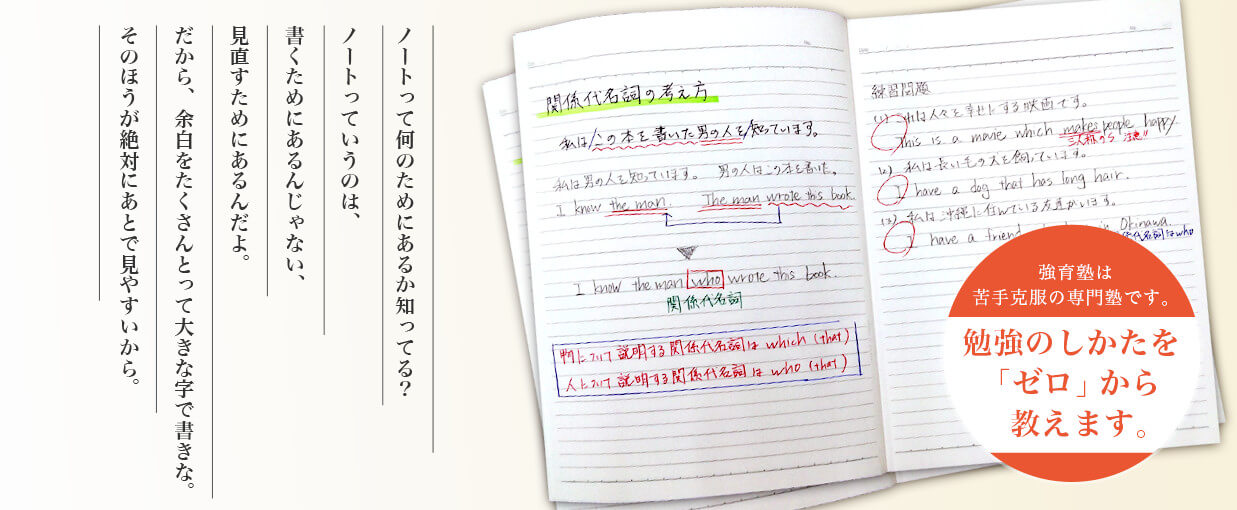 ノートって何のためにあるか知ってる?
ノートっていうのは、
書くためにあるんじゃない、
見直すためにあるんだよ。
だから、余白をたくさんとって大きな字で書きな。
そのほうが絶対にあとで見やすいから。
関係代名詞の考え方
私は/この本を書いた男の人を/知っています。
私は男の人を知っています。 男の人はこの本を書いた。
I know the man. The man wrote this book.
I know the man who wrote this book.
関係代名詞
物について説明する関係代名詞は which (that)
人について説明する関係代名詞は who (that)
練習問題
(1) これは人々を幸せにする映画です。
This is a movie which makes people happy.
三人称のS 注意!!
(2) 私は長い毛の犬を飼っています。
I have a dog that has long hair.
(3) 私は沖縄に住んでいる友達がいます。
I have a friend in Okinawa.
代名詞はwho
強育塾は
苦手克服の専門塾です。
勉強のしかたを
「ゼロ」から
教えます。